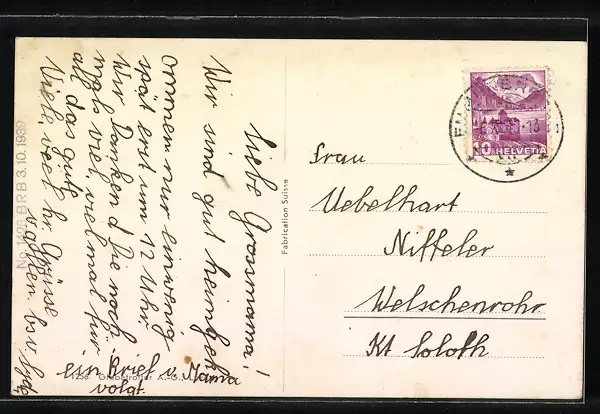 Liebe Grossmama!
Wir sind gut heimgek
ommen nur ein wenig
spät erst um 12 Uhr.
Wir Danken d Die noch
mals viel, viel mal für
all das gute
Viele, viele hr. Grüsse
v. allen. bsv.
ein Brief v. Mama
volgt.
No. 1426 BRB 3.10.1939
1256 Globetrotter A.-G.,
Fabrication Suisse
HELVETIA
10
Frau
Uebelhart
Niffeler
Welschenrohr
Kt Soloth